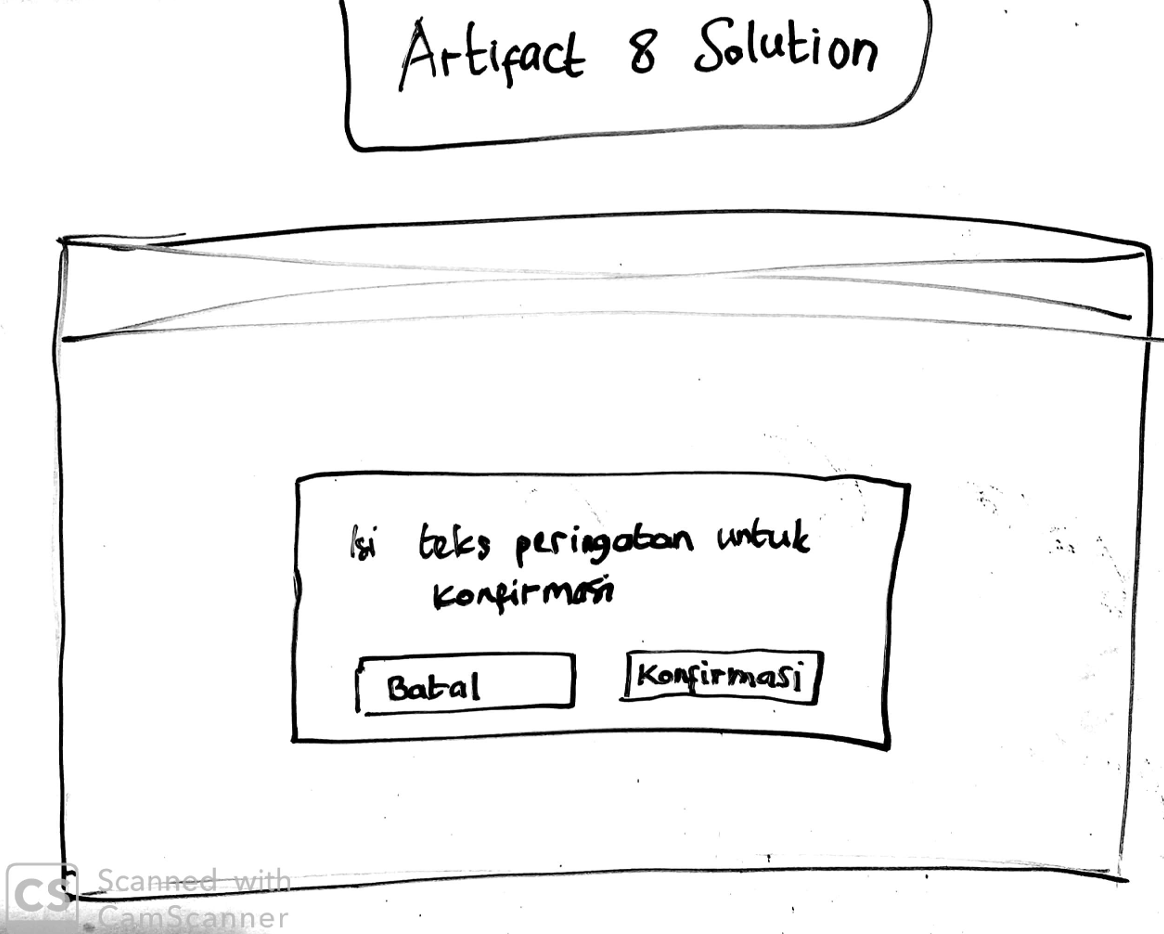 Artifact 8 Solution
Isi teks peringatan untuk
konfirmasi
Batal
Konfirmasi
CS
Scanned with
CamScanner